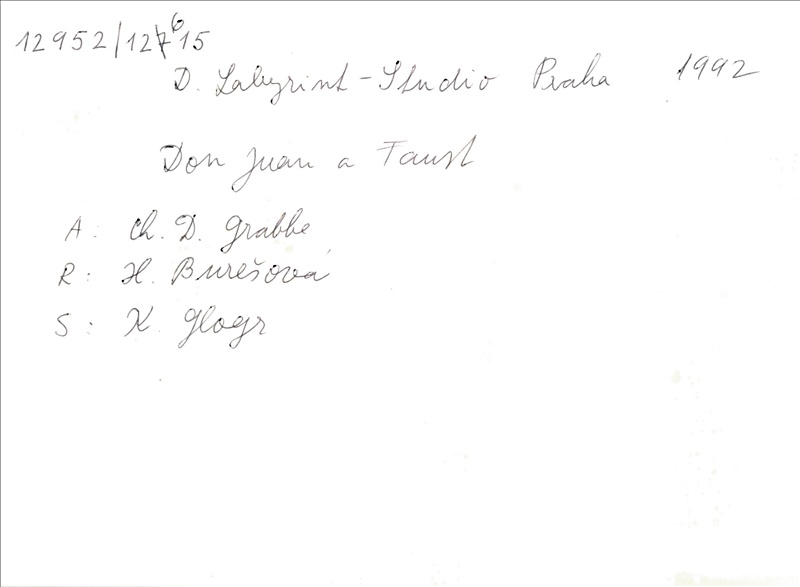 12952/12615
D. Labyrint - Studio Praha 1992
Don Juan a Faust
A: Ch. D. Grabbe
R: H. Burešová
S: K. Glogr